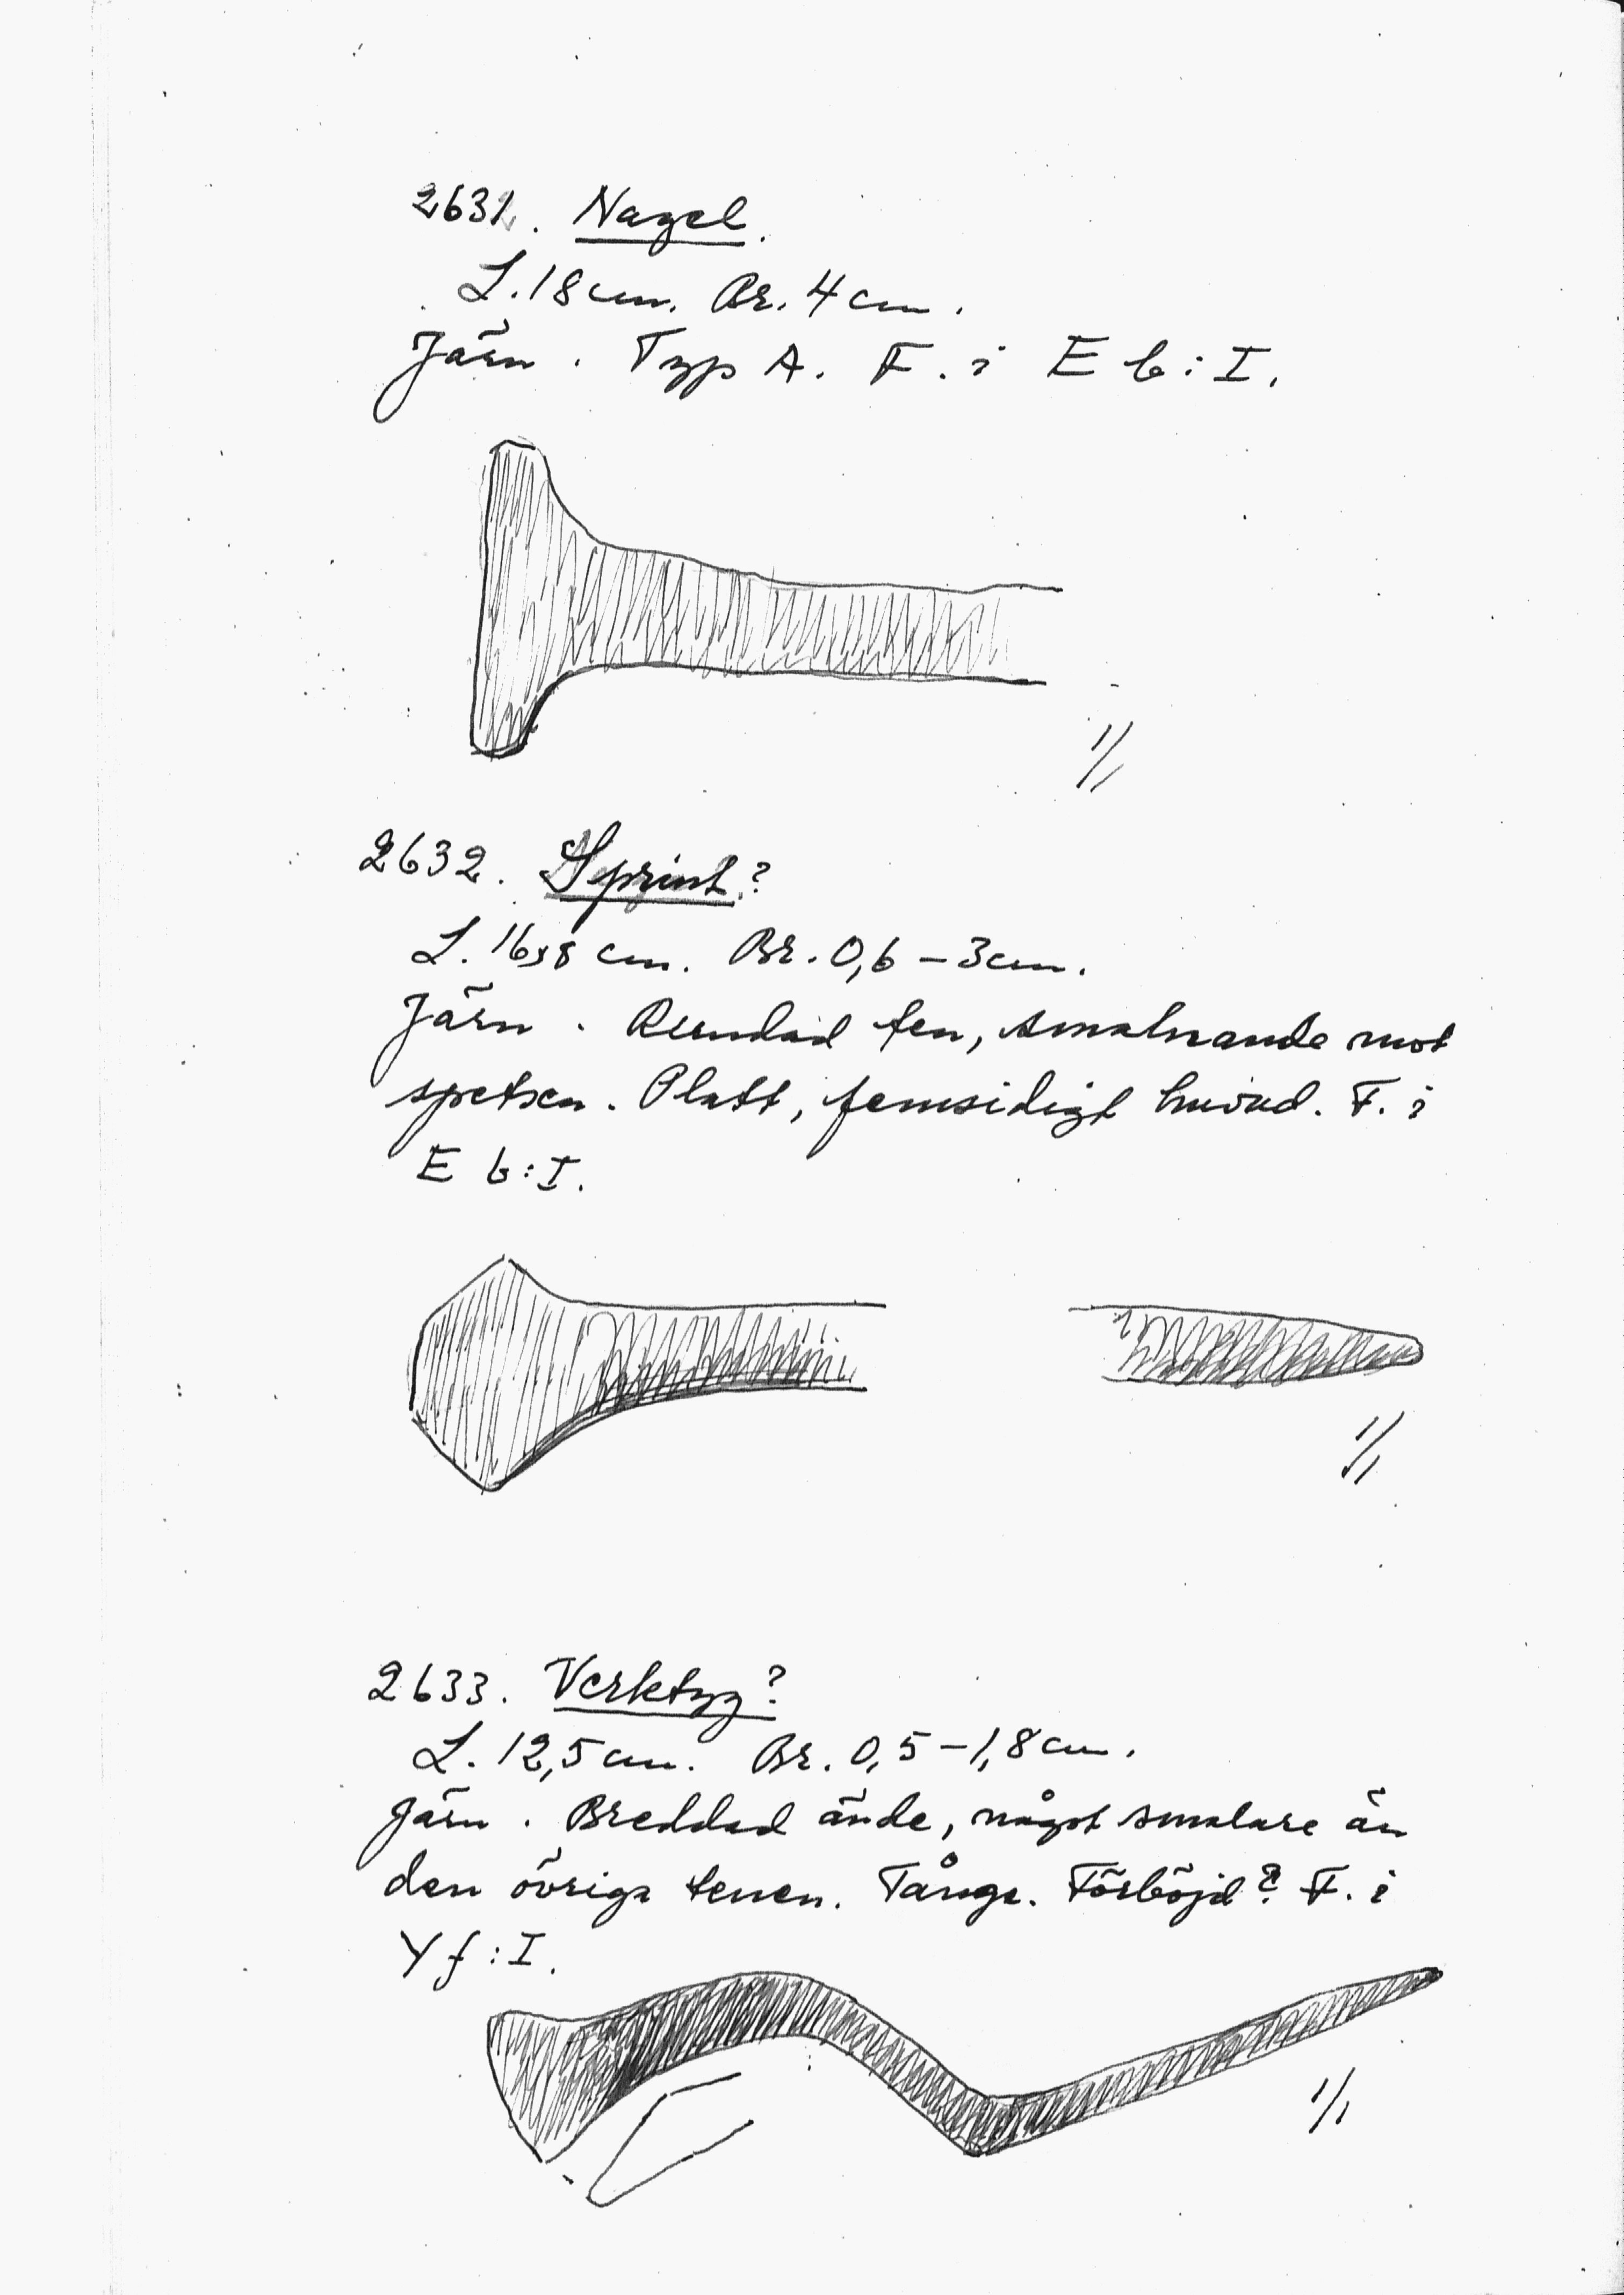 2631. Nagel.
L. 18 cm. Br. 4 cm.
Järn. Typ A. F. i E b:I.
1/1
2632. Sprint?
L. 16,8 cm. Br. 0,6 – 3 cm.
Järn. Rundad ten, smalnande mot
spetsen. Platt, femsidigt huvud. F. i
E b:I.
1/1
2633. Verktyg?
L. 12,5 cm. Br. 0,5 – 1,8 cm.
Järn. Breddad ände, något smalare än
den övriga tenen. Tånge. Förböjd? F. i
Y f:I.
1/1